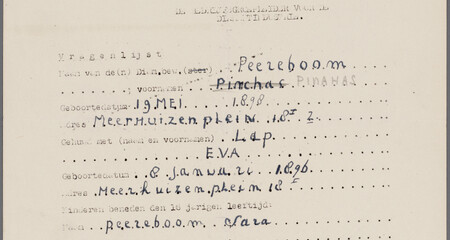 Vragenlijst
Naam van de(n) Dien.bed.(ster) . . Peereboom
; voornamen . Pinchas PINCHAS
Geboortedatum: 19 MEI 1898
Adres Meerhuizenplein 18 I Z.
Gehuwd met (naam en voornamen) . Lap
EVA
Geboortedatum . 8 januari 1896
Adres . Meerhuizenplein 18 I
Kinderen beneden den 16 jarigen leeftijd:
Naam . peereboom . Clara